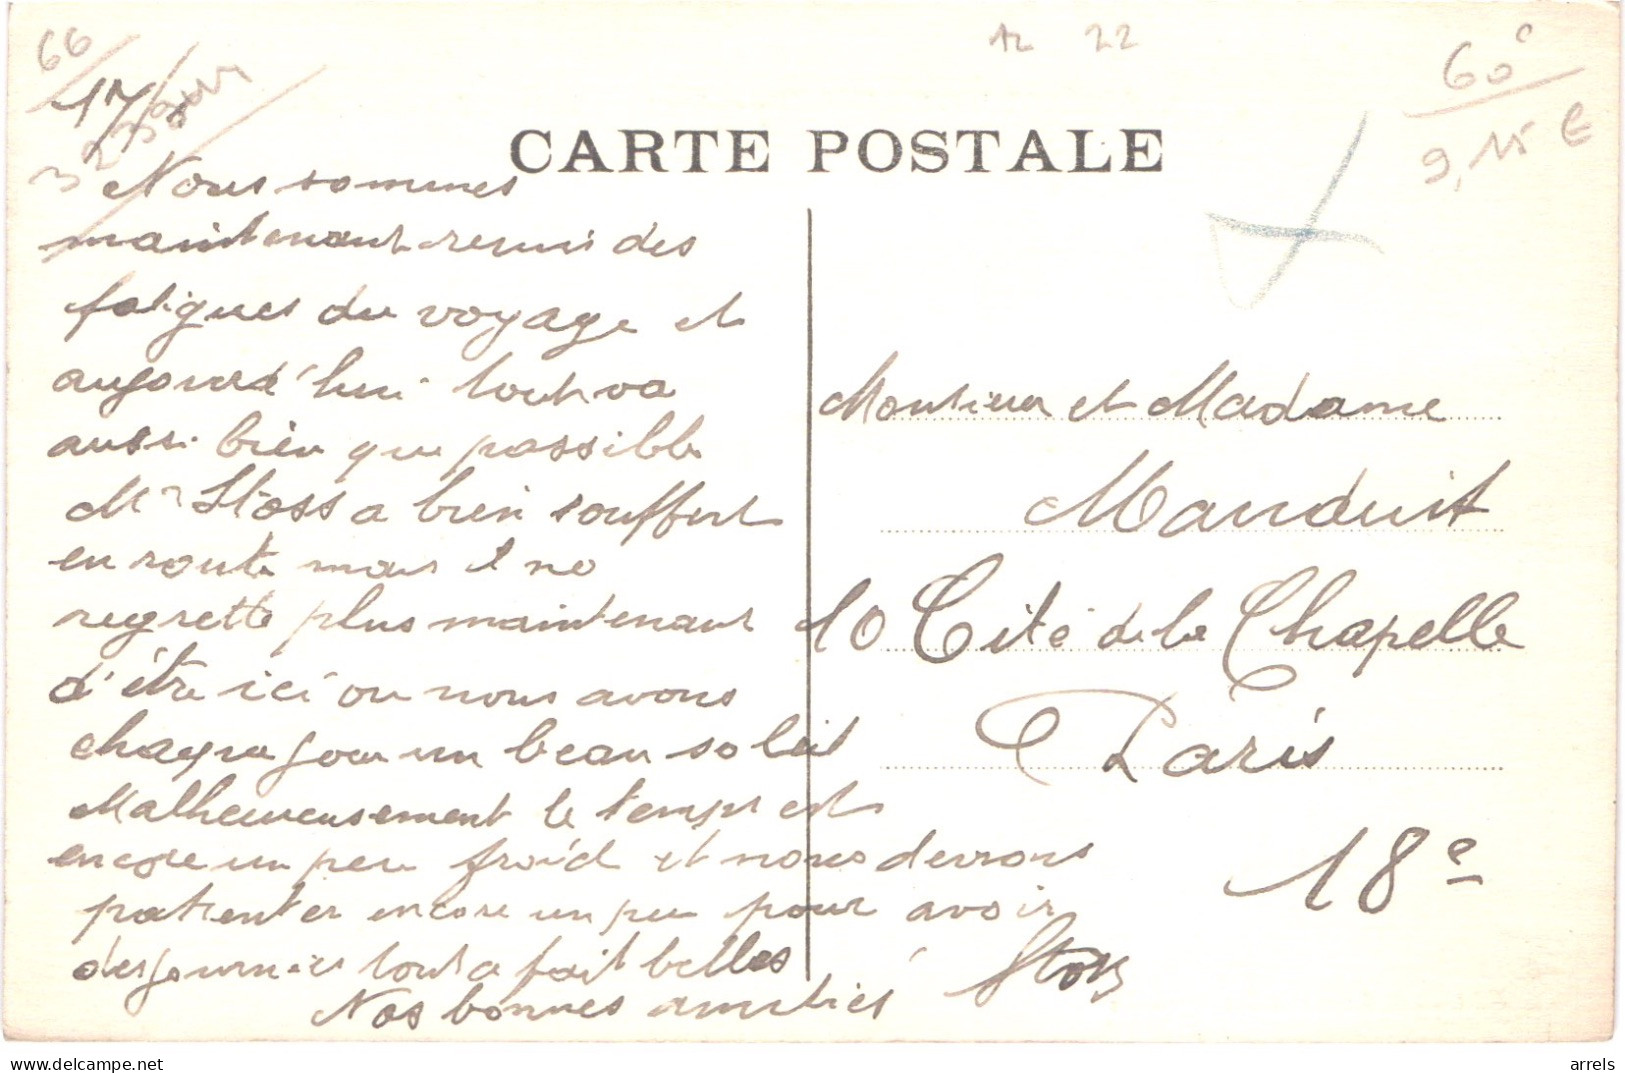 66
17
12 22
60c
9,15 €
CARTE POSTALE
Nous sommes
maintenant remis des
fatigues du voyage et
aujourd'hui tout va
aussi bien que possible
Mr Stoss a bien souffert
en route mais il ne
regrette plus maintenant
d'être ici ou nous avons
chaque jour un beau soleil
Malheureusement le temps est
encore un peu froid et nous devrons
patienter encore un peu pour avoir
des journées tout a fait belles
Nos bonnes amitiés Stoss
Monsieur et Madame
Mauduit
10 Cité de la Chapelle
Paris
18e
delcampe.net
arrels